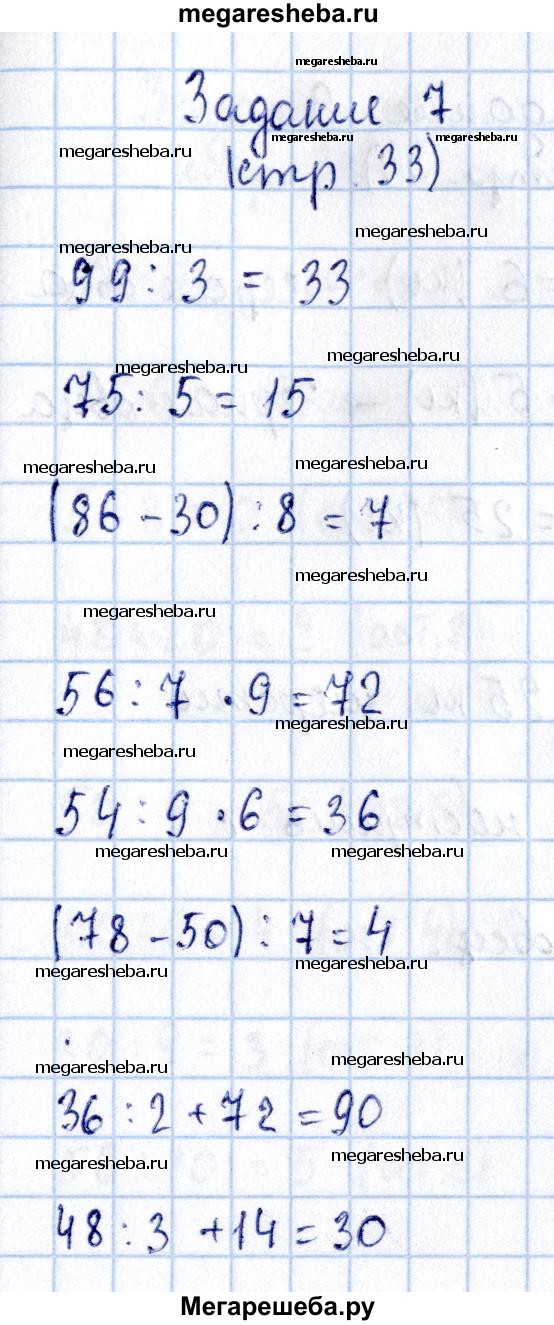 megaresheba.ru
megaresheba.ru
Задание 7
megaresheba.ru
megaresheba.ru
megaresheba.ru
(стр. 33)
megaresheba.ru
megaresheba.ru
99 : 3 = 33
megaresheba.ru
megaresheba.ru
75 : 5 = 15
megaresheba.ru
megaresheba.ru
(86 - 30) : 8 = 7
megaresheba.ru
megaresheba.ru
56 : 7 · 9 = 72
megaresheba.ru
megaresheba.ru
54 : 9 · 6 = 36
megaresheba.ru
megaresheba.ru
(78 - 50) : 7 = 4
megaresheba.ru
megaresheba.ru
megaresheba.ru
megaresheba.ru
36 : 2 + 72 = 90
megaresheba.ru
megaresheba.ru
48 : 3 + 14 = 30
Мегарешеба.ру